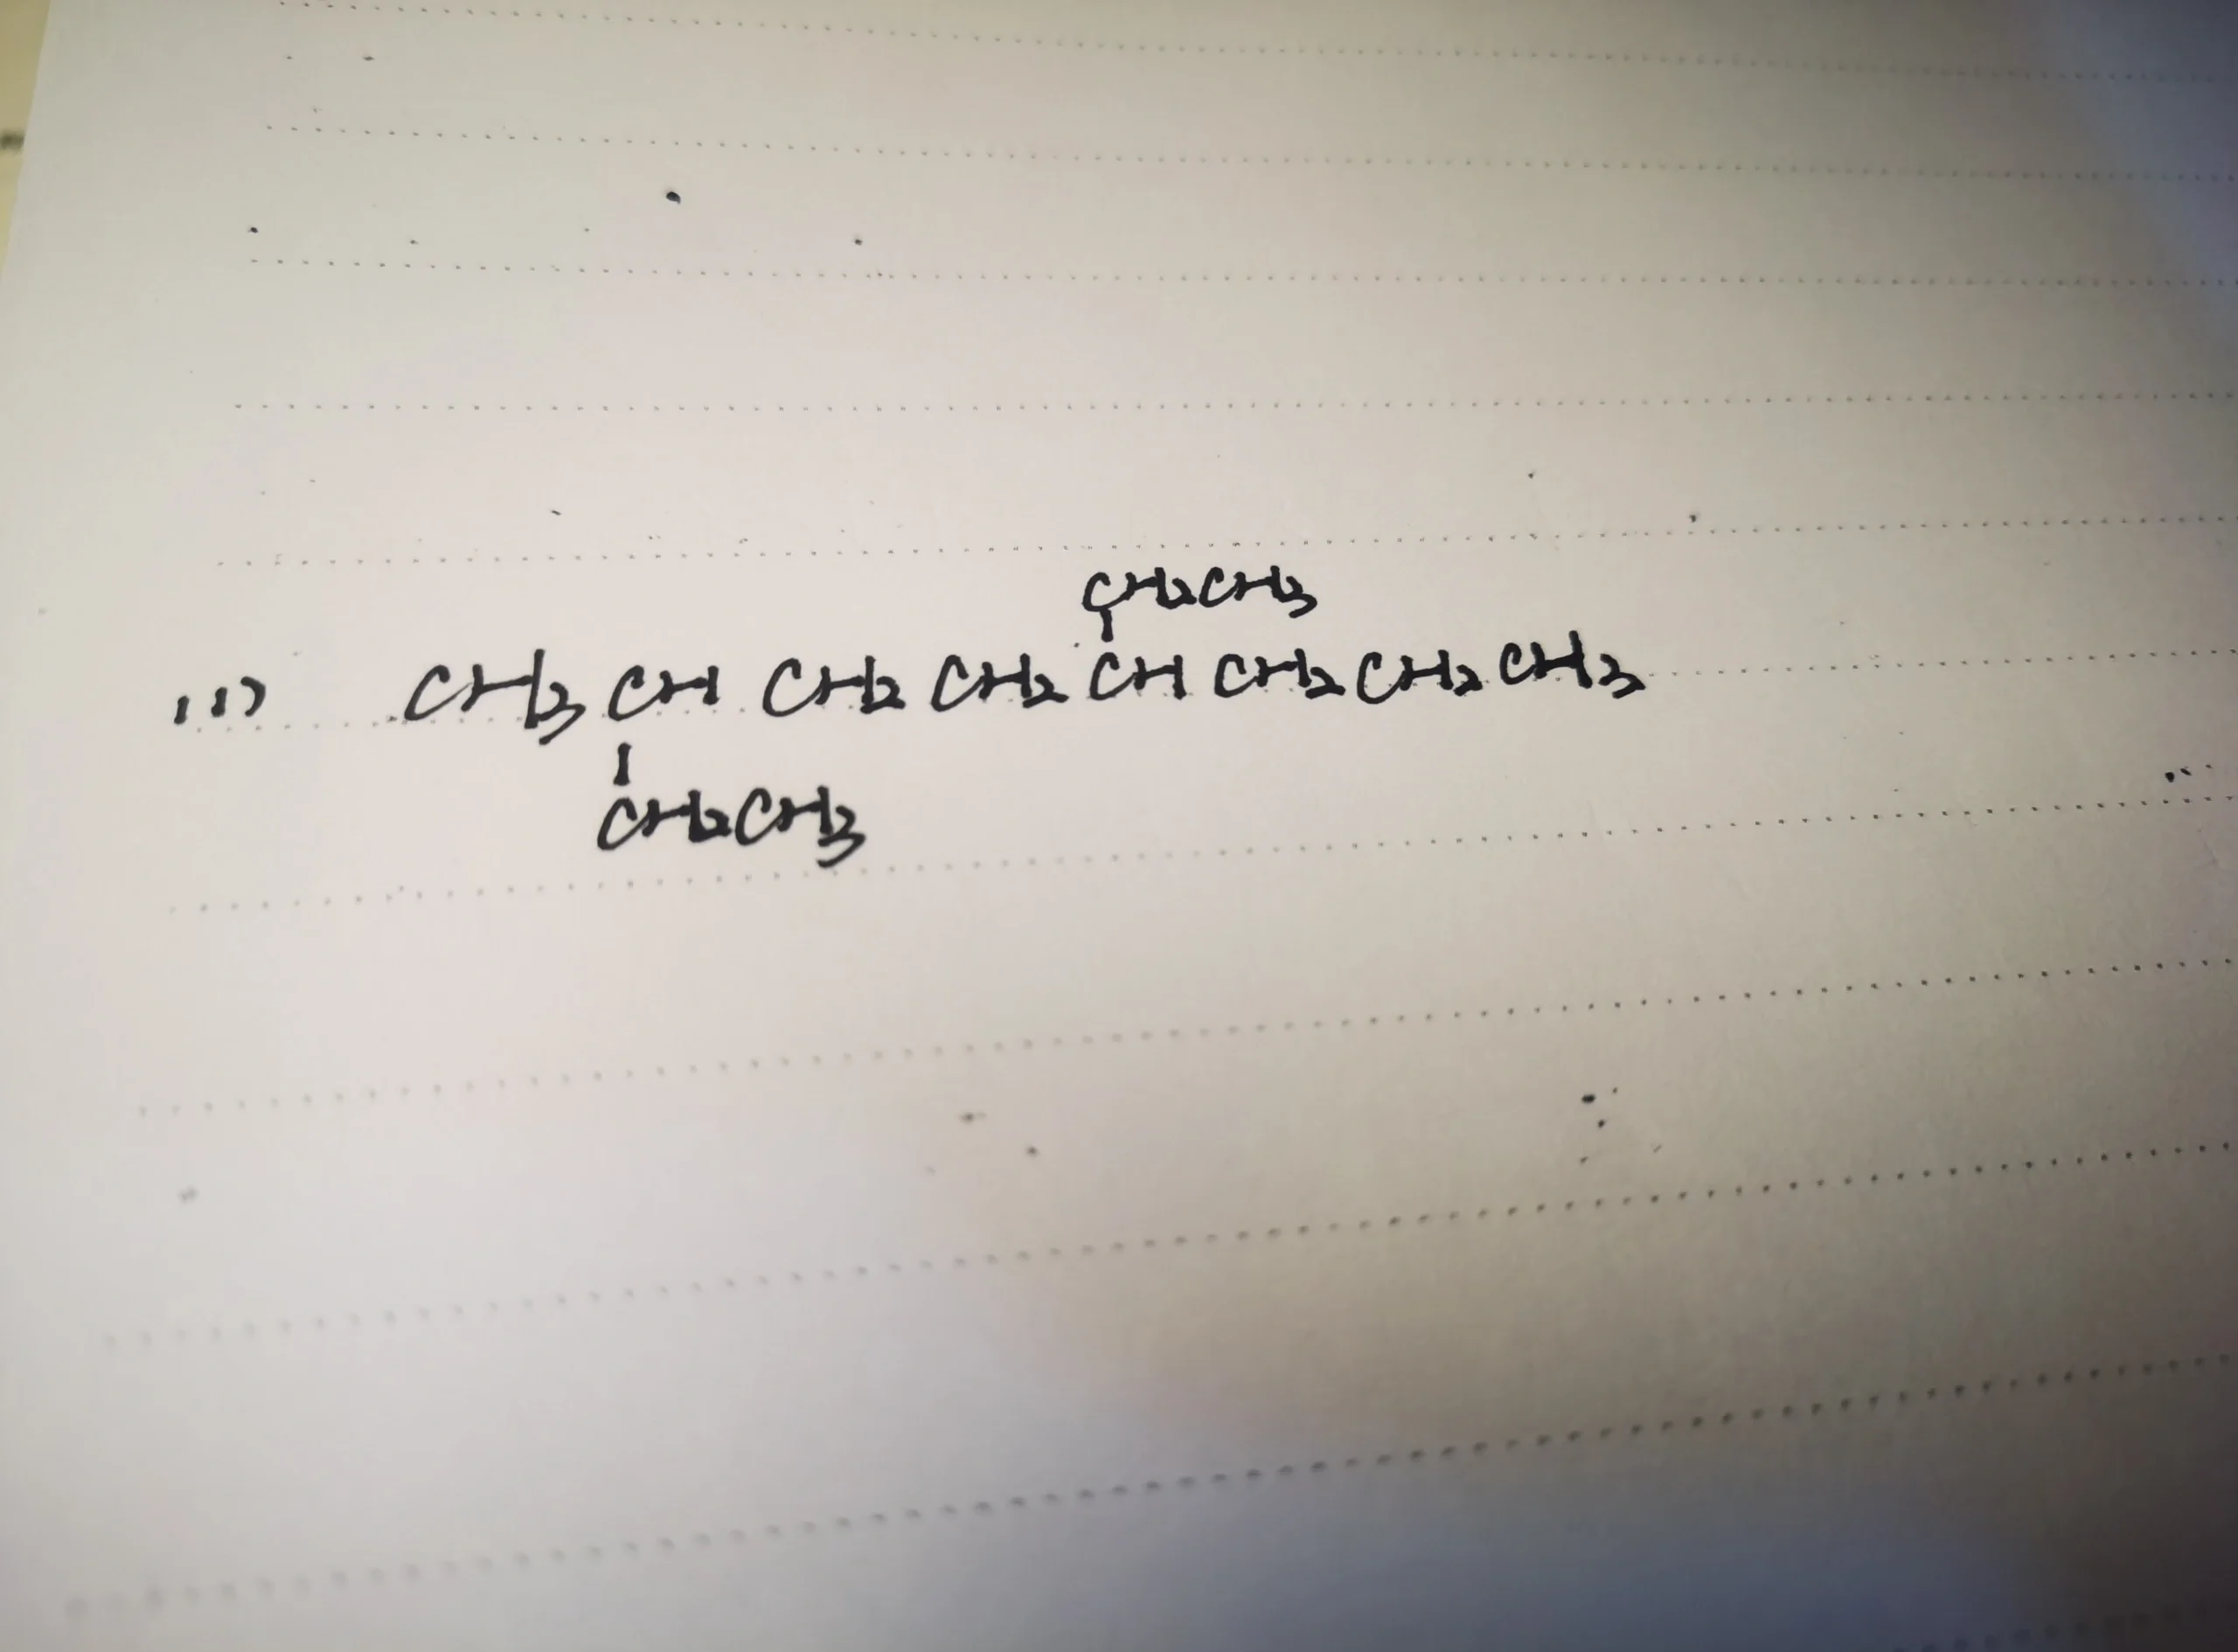 CH2CH3
(1) CH3 CH CH2 CH2 CH CH2 CH2 CH3
CH2CH3